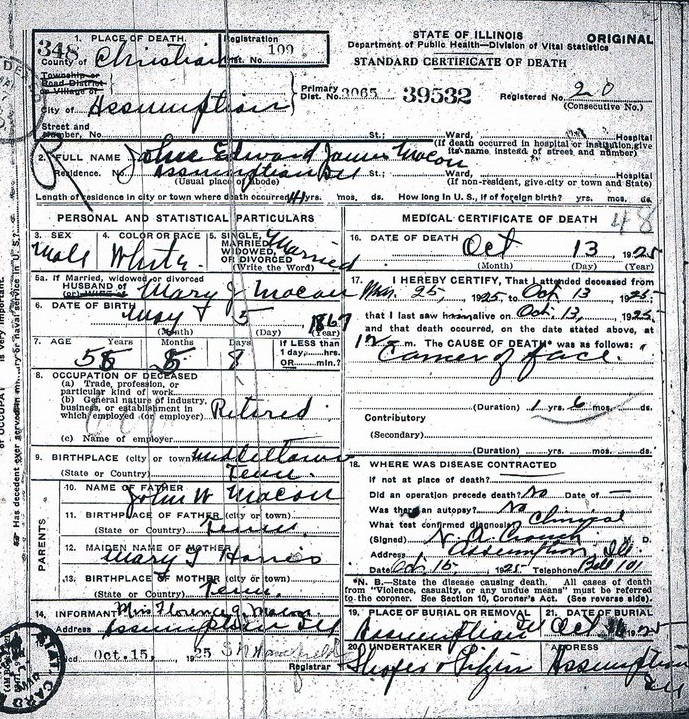 STATE OF ILLINOIS
ORIGINAL
Department of Public Health—Division of Vital Statistics
STANDARD CERTIFICATE OF DEATH
348
1. PLACE OF DEATH.
County of Christian
Registration
Dist. No. 109
Township or
Road District
or Village of
City of Assumption
Primary
Dist. No. 3065
39532
Registered No. 20
(Consecutive No.)
Street and
Number, No. St.; Ward, Hospital
(If death occurred in hospital or institution, give
its name, instead of street and number)
2. FULL NAME John Edward James Macon
Residence. No. Assumption Ill St.; Ward,
(Usual place of abode) (If non-resident, give city or town and State)
Length of residence in city or town where death occurred yrs. mos. ds. How long in U. S., if of foreign birth? yrs. mos. ds.
PERSONAL AND STATISTICAL PARTICULARS
3. SEX
Male
4. COLOR OR RACE
White
5. SINGLE,
MARRIED,
WIDOWED,
OR DIVORCED
(Write the Word)
Married
5a. If Married, widowed or divorced
HUSBAND of
(or) WIFE of
Mary J Macon
6. DATE OF BIRTH
May 5 1867
(Month) (Day) (Year)
7. AGE Years Months Days
58 5 8
If LESS than
1 day, hrs.
OR min.?
8. OCCUPATION OF DECEASED
(a) Trade, profession, or
particular kind of work
(b) General nature of industry,
business, or establishment in
which employed (or employer)
Retired
(c) Name of employer
9. BIRTHPLACE (city or town) Middletown
(State or Country) Tenn.
PARENTS
10. NAME OF FATHER
John W Macon
11. BIRTHPLACE OF FATHER (city or town)
(State or Country) Tenn.
12. MAIDEN NAME OF MOTHER
Mary S Harris
13. BIRTHPLACE OF MOTHER (city or town)
(State or Country) Tenn
14. INFORMANT Mrs Florence J. Macon
Address Assumption Ill
Oct. 15, 1925
Registrar
MEDICAL CERTIFICATE OF DEATH
48
16. DATE OF DEATH Oct 13 1925
(Month) (Day) (Year)
17. I HEREBY CERTIFY, That I attended deceased from
Mar. 25, 1925 to Oct 13 1925
that I last saw him alive on Oct. 13, 1925
and that death occurred, on the date stated above, at
m. The CAUSE OF DEATH* was as follows:
Cancer of face.
(Duration) 1 yrs. 6 mos. ds.
Contributory
(Secondary)
(Duration) yrs. mos. ds.
18. WHERE WAS DISEASE CONTRACTED
If not at place of death?
Did an operation precede death? No Date of —
Was there an autopsy? No
What test confirmed diagnosis? Clinical
(Signed) M. D.
Address Assumption, Ill.
Date Oct. 15, 1925 Telephone Bell 101
*N. B.—State the disease causing death. All cases of death
from "Violence, casualty, or any undue means" must be referred
to the coroner. See Section 10, Coroner's Act. (See reverse side).
19. PLACE OF BURIAL OR REMOVAL
Assumption Ill
21. DATE OF BURIAL
Oct 1925
20. UNDERTAKER
ADDRESS
Assumption
Ill
Has deceased ever served in military or naval service in U. S.?